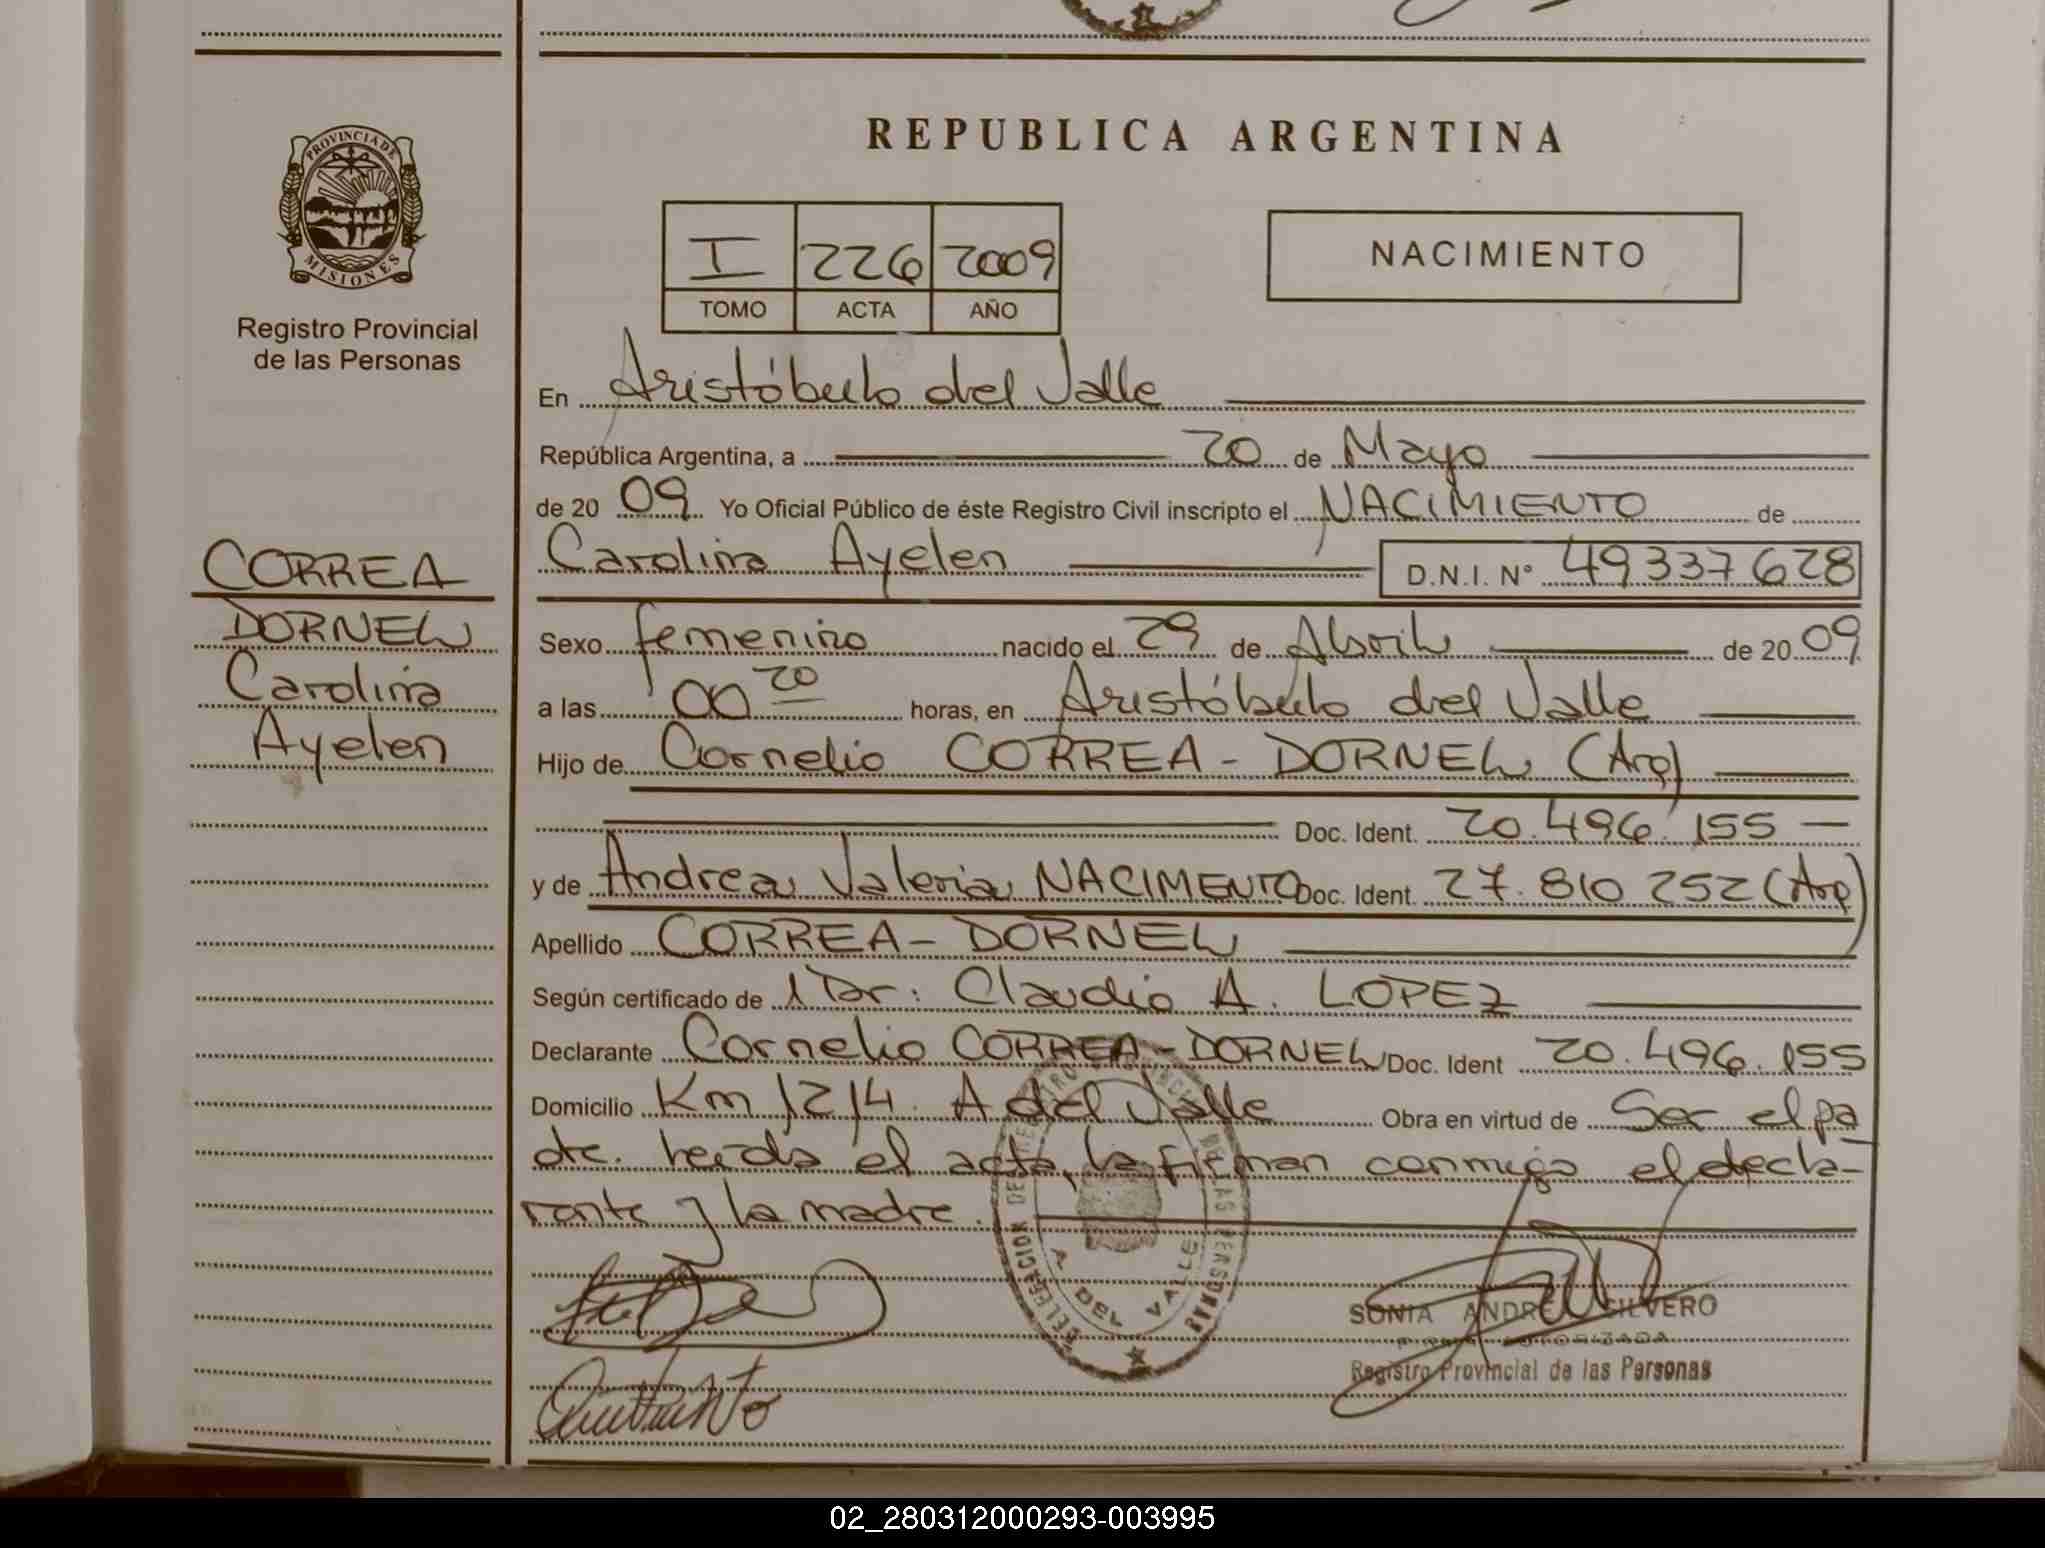 REPUBLICA ARGENTINA
PROVINCIA DE
MISIONES
Registro Provincial
de las Personas
I 226 2009
TOMO ACTA AÑO
NACIMIENTO
En Aristóbulo del Valle
República Argentina, a 20 de Mayo
de 20 09 Yo Oficial Público de éste Registro Civil inscripto el NACIMIENTO de
Carolina Ayelen D.N.I. N° 49337628
CORREA
DORNEL
Carolina
Ayelen
Sexo femenino nacido el 29 de Abril de 20 09
a las 00 20 horas, en Aristóbulo del Valle
Hijo de Cornelio CORREA - DORNEL (Arg)
Doc. Ident. 20.496.155
y de Andrea Valeria NACIMENTO Doc. Ident. 27.810 252 (Arg)
Apellido CORREA - DORNEL
Según certificado de Dr: Claudio A. LOPEZ
Declarante Cornelio CORREA - DORNEL Doc. Ident 20.496.155
Domicilio Km 1214 A del Valle Obra en virtud de Ser el pa
dre. Leída el acta, la firman conmigo el decla-
rante y la madre.
DELEGACION DE REGISTRO PROVINCIAL DE LAS PERSONAS
A DEL VALLE
SONIA ANDREA SILVERO
FIRMA AUTORIZADA
Registro Provincial de las Personas
02_280312000293-003995